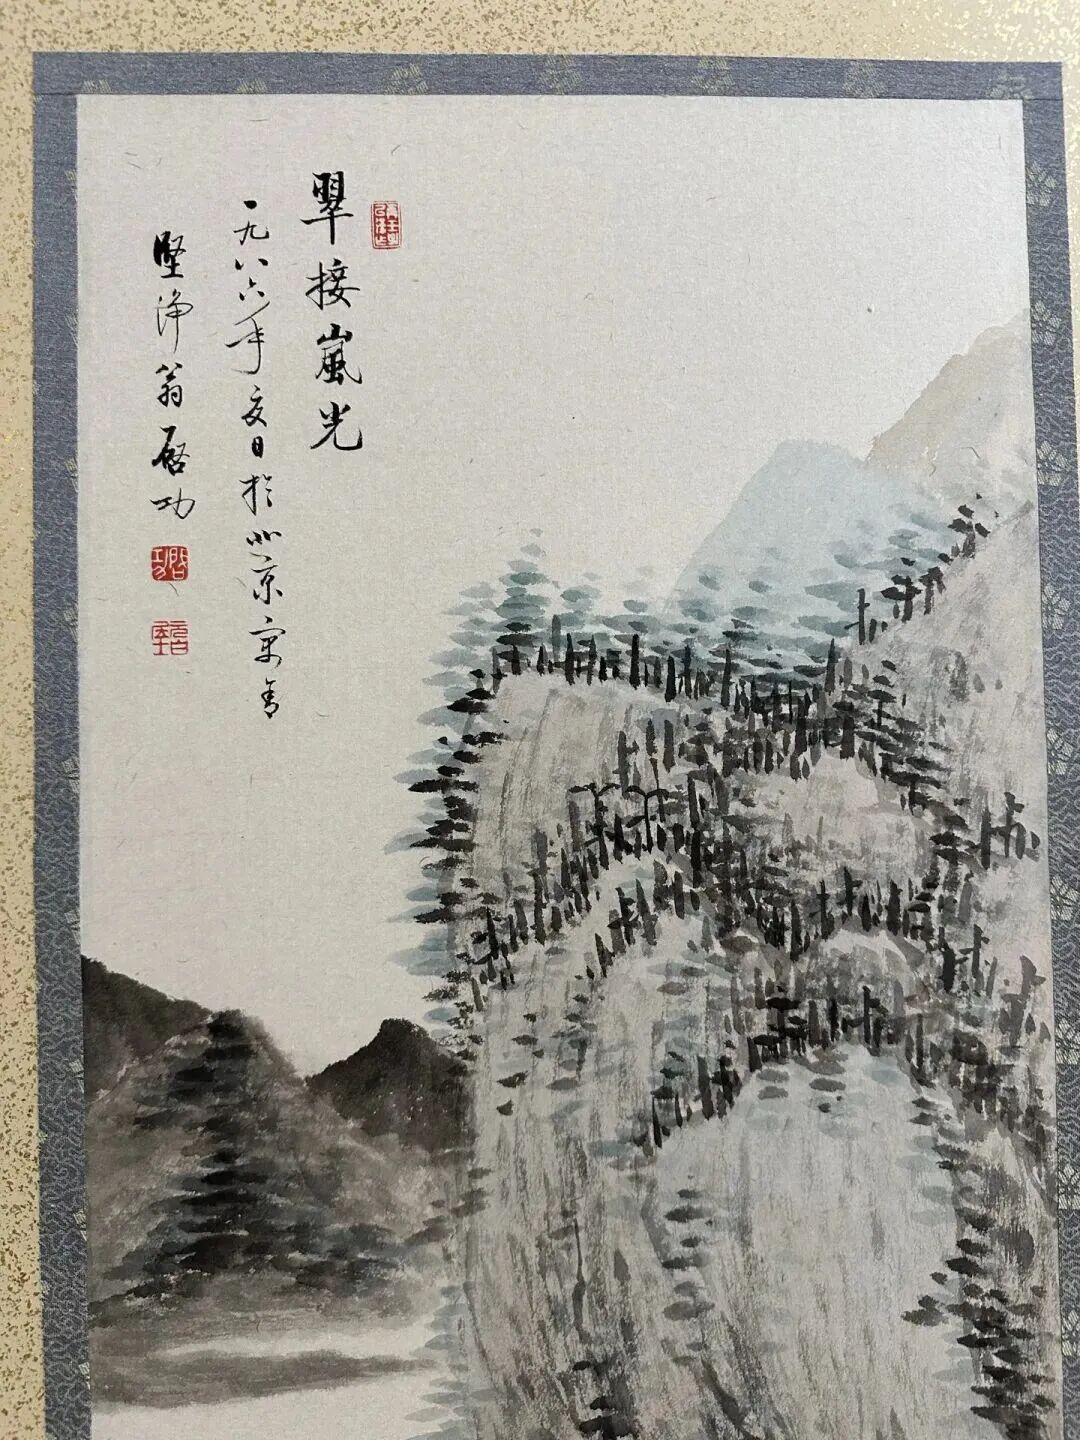 翠接嵐光
一九八六年夏日於北京寓舍
堅淨翁啓功